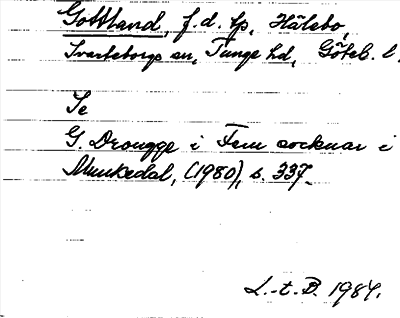 Gottland, f.d. lp, Hälebo,
Svarteborgs sn, Tunge hd, Göteb. l.
Se
G. Drougge i Fem socknar i
Munkedal, (1980), s. 337.
L.-t. B. 1984.